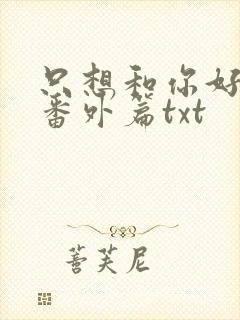 只想和你好
番外篇txt
菩芙尼